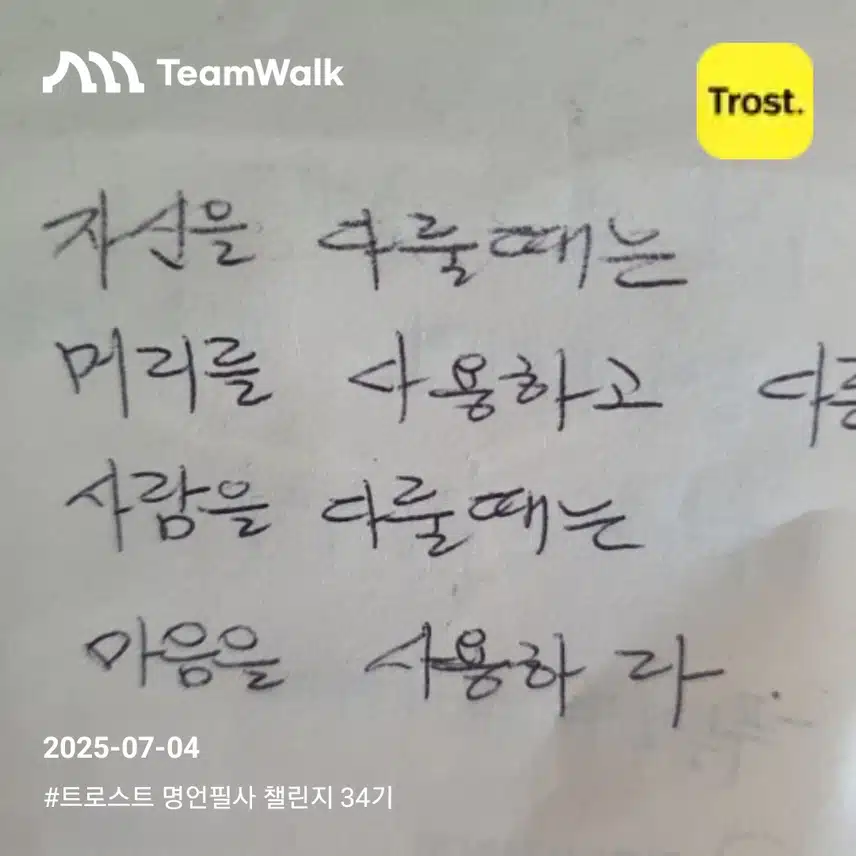 TeamWalk
Trost.
자신을 다룰때는
머리를 사용하고 다른
사람을 다룰때는
마음을 사용하라.
2025-07-04
#트로스트 명언필사 챌린지 34기